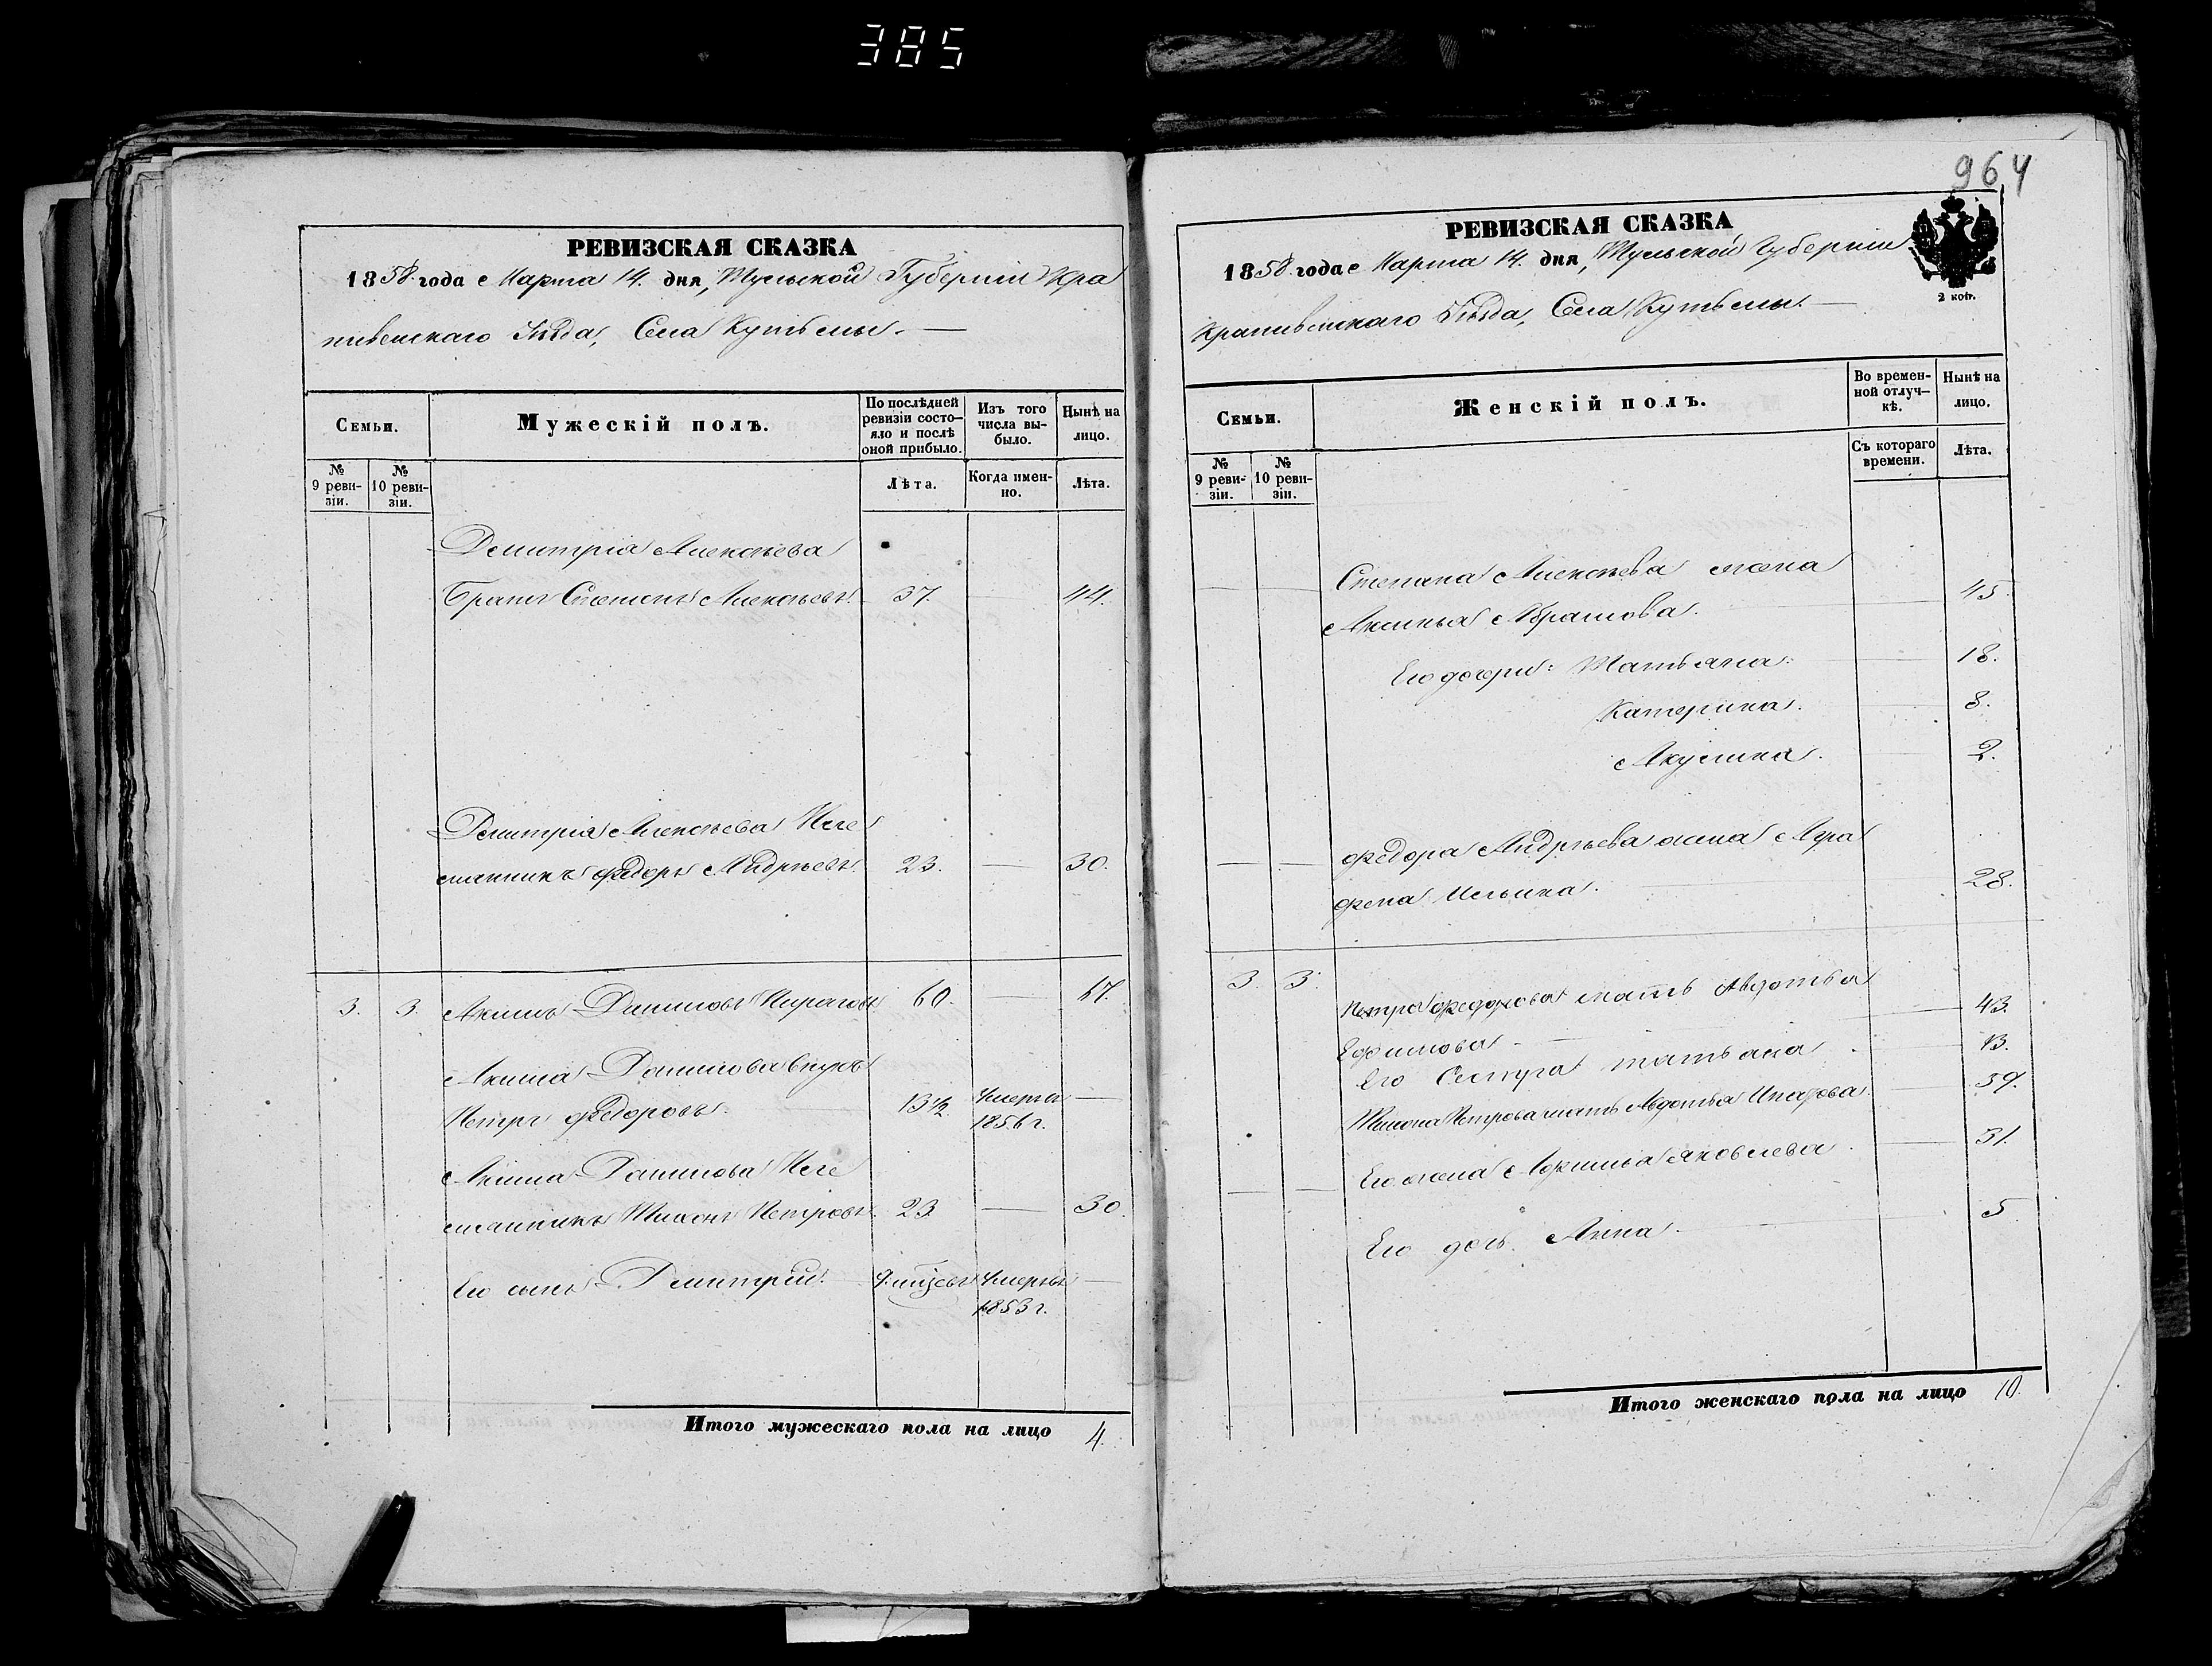 385
РЕВИЗСКАЯ СКАЗКА
1858 года Марта 14. дня, Тульской Губерніи Кра
пивенскаго Уѣзда, Села Кутьемы.
Семьи.
Мужескій полъ.
По послѣдней ревизіи состо-
яло и послѣ оной прибыло.
Изъ того числа вы-
было.
Нынѣ на лицо.
№ 9 реви-
зіи.
№ 10 реви-
зіи.
Лѣта.
Когда имен-
но.
Лѣта.
Дмитрія Алексѣева
Братъ Степанъ Алексѣевъ. 37. 44.
Дмитрія Алексѣева Пле
мянникъ Федоръ Андреевъ. 23. 30.
3. 3. Акимъ Даниловъ 60. 67.
Акима Данилова внукъ
Петръ Федоровъ. 13½ Умеръ 1856 г.
Акима Данилова Пле
мянникъ Тихонъ Петровъ. 23. 30.
Его сынъ Дмитрій. Умеръ 1853 г.
Итого мужескаго пола на лицо 4.
964
РЕВИЗСКАЯ СКАЗКА
1858 года Марта 14. дня, Тульской Губерніи
2 коп.
Крапивенскаго Уѣзда, Села Кутьемы.
Семьи.
Женскій полъ.
Во времен-
ной отлуч-
кѣ.
Нынѣ на лицо.
№ 9 реви-
зіи.
№ 10 реви-
зіи.
Съ котораго времени.
Лѣта.
Степана Алексѣева жена
Аксинья Абрамова. 45.
Его дочери: Татьяна. 18.
Катерина. 8.
Акулина. 2.
Федора Андреева жена Агра
фена Ильина. 28.
3. 3. Петра Федорова мать Авдотья
Ефимова 43.
Его Сестра Татьяна 13.
Тихона Петрова мать Авдотья 59.
Его жена Афимья Яковлева 31.
Его дочь Анна. 5
Итого женскаго пола на лицо 10.